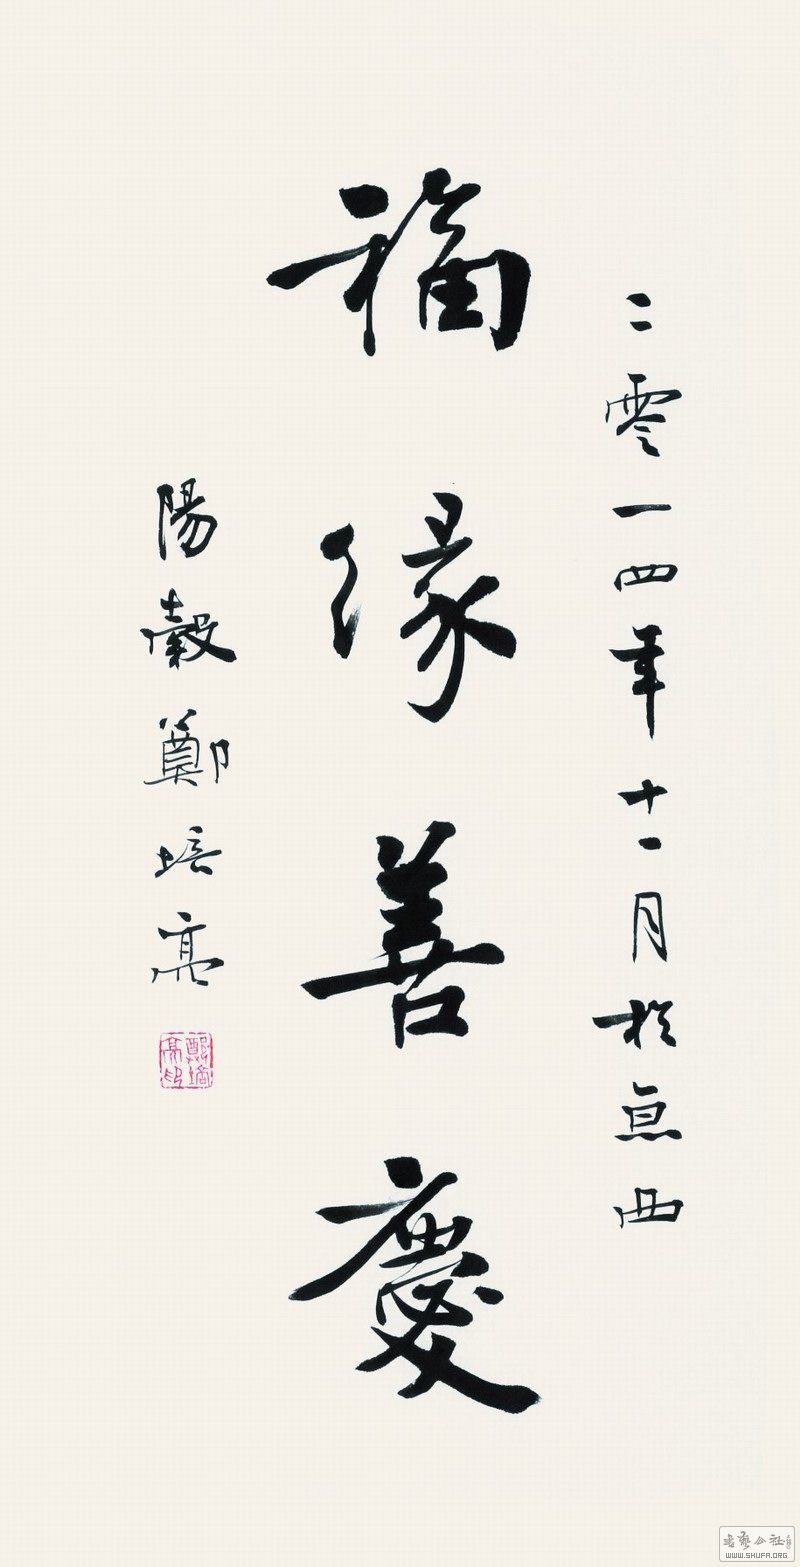 二零一四年十一月於京西
福缘善慶
陽穀鄭培亮
鄭培亮印
書藝公社
WWW.SHUFA.ORG